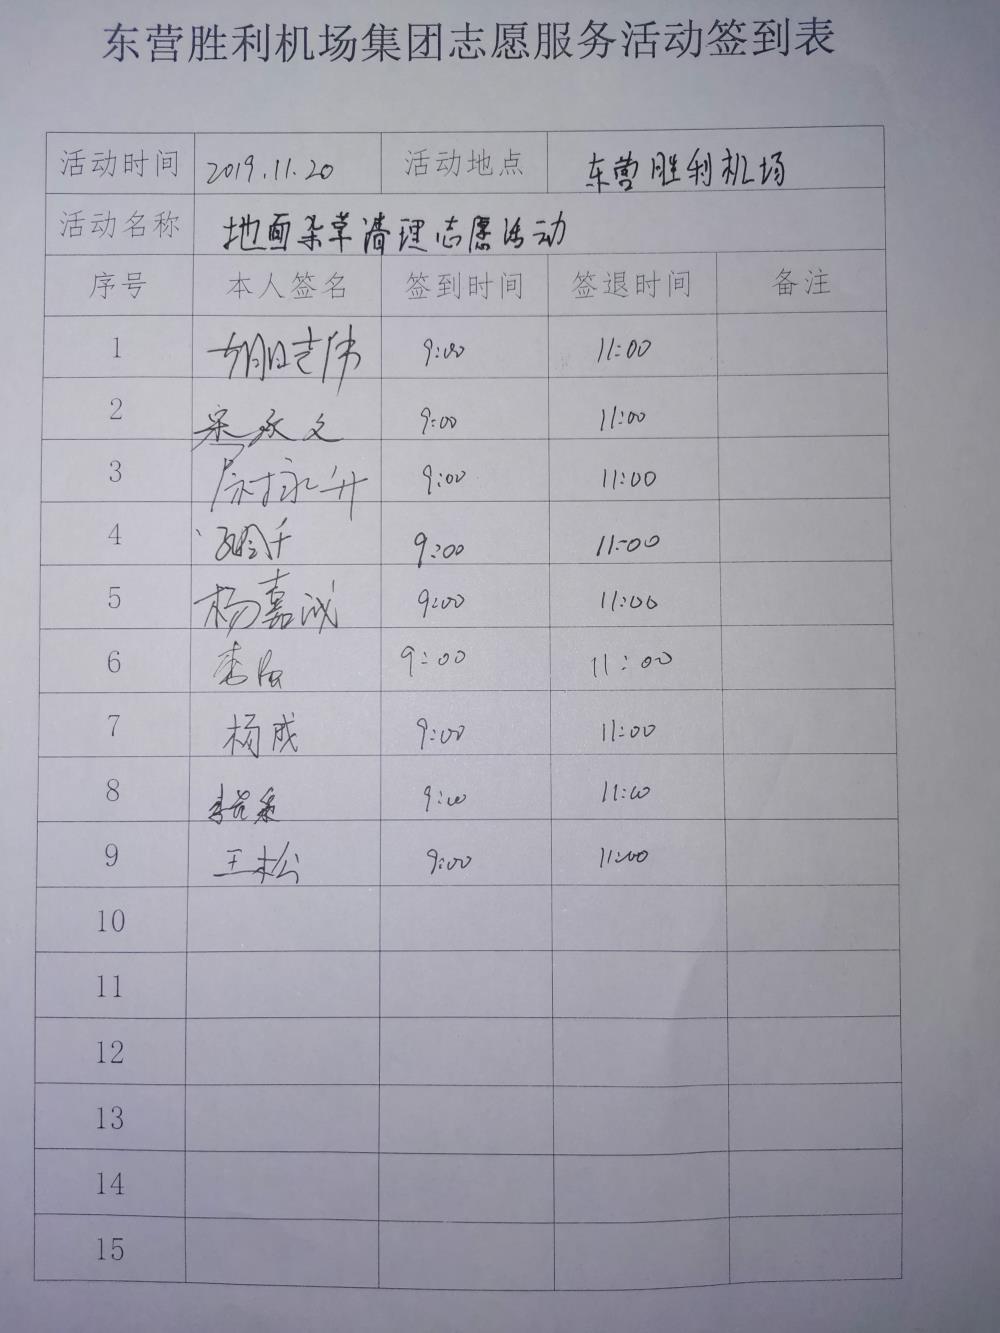 东营胜利机场集团志愿服务活动签到表
活动时间 2019.11.20 活动地点 东营胜利机场
活动名称 地面杂草清理志愿活动
序号 本人签名 签到时间 签退时间 备注
1 9:00 11:00
2 9:00 11:00
3 9:00 11:00
4 9:00 11:00
5 杨嘉诚 9:00 11:00
6 9:00 11:00
7 杨成 9:00 11:00
8 9:00 11:00
9 王松 9:00 11:00
10
11
12
13
14
15